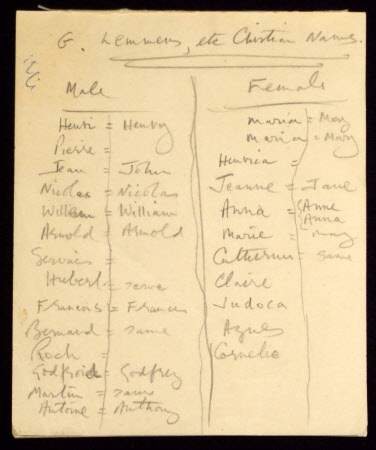 G. Lemmens, etc Christian Names.
Male
Henri = Henry
Pierre =
Jean = John
Nicolas = Nicolas
William = William
Arnold = Arnold
Servais =
Hubert = same
Francois = Francis
Bernard = same
Roch =
Godfroid = Godfrey
Martin = same
Antoine = Anthony
Female
Maria = Mary
Maria = Mary
Henrica =
Jeanne = Jane
Anna = Anne
Anna
Marie = Mary
Catherine = same
Claire
Judoca
Agnes
Cornelia